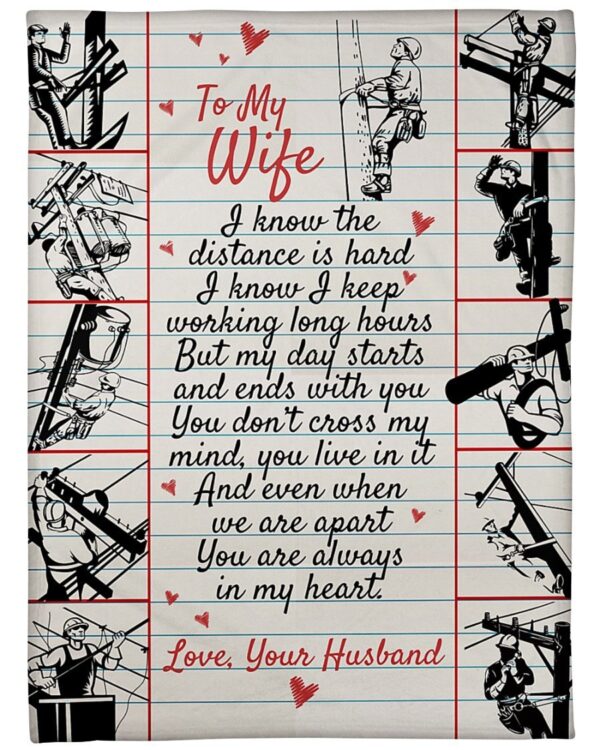 To My
Wife
I know the
distance is hard
I know I keep
working long hours
But my day starts
and ends with you
You don't cross my
mind, you live in it
And even when
we are apart
You are always
in my heart.
Love, Your Husband